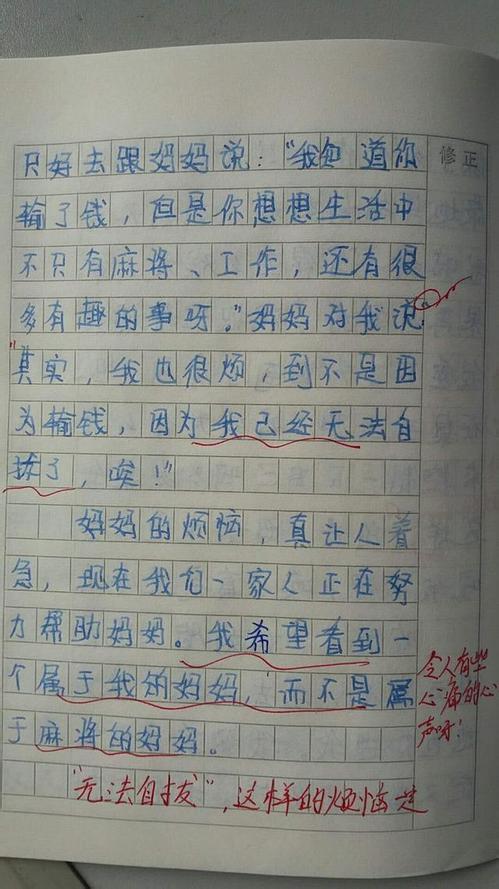 修正
只好去跟妈妈说："我知道你
输了钱，但是你想想生活中
不只有麻将、工作，还有很
多有趣的事呀。"妈妈对我说：
"其实，我也很烦，到不是因
为输钱，因为我已经无法自
拔了，唉！"
妈妈的烦恼，真让人着
急，现在我们一家人正在努
力帮助妈妈。我希望看到一
个属于我的妈妈，而不是属
于麻将的妈妈。
令人有些
心痛的心
声呀！
"无法自拔"，这样的烦恼是